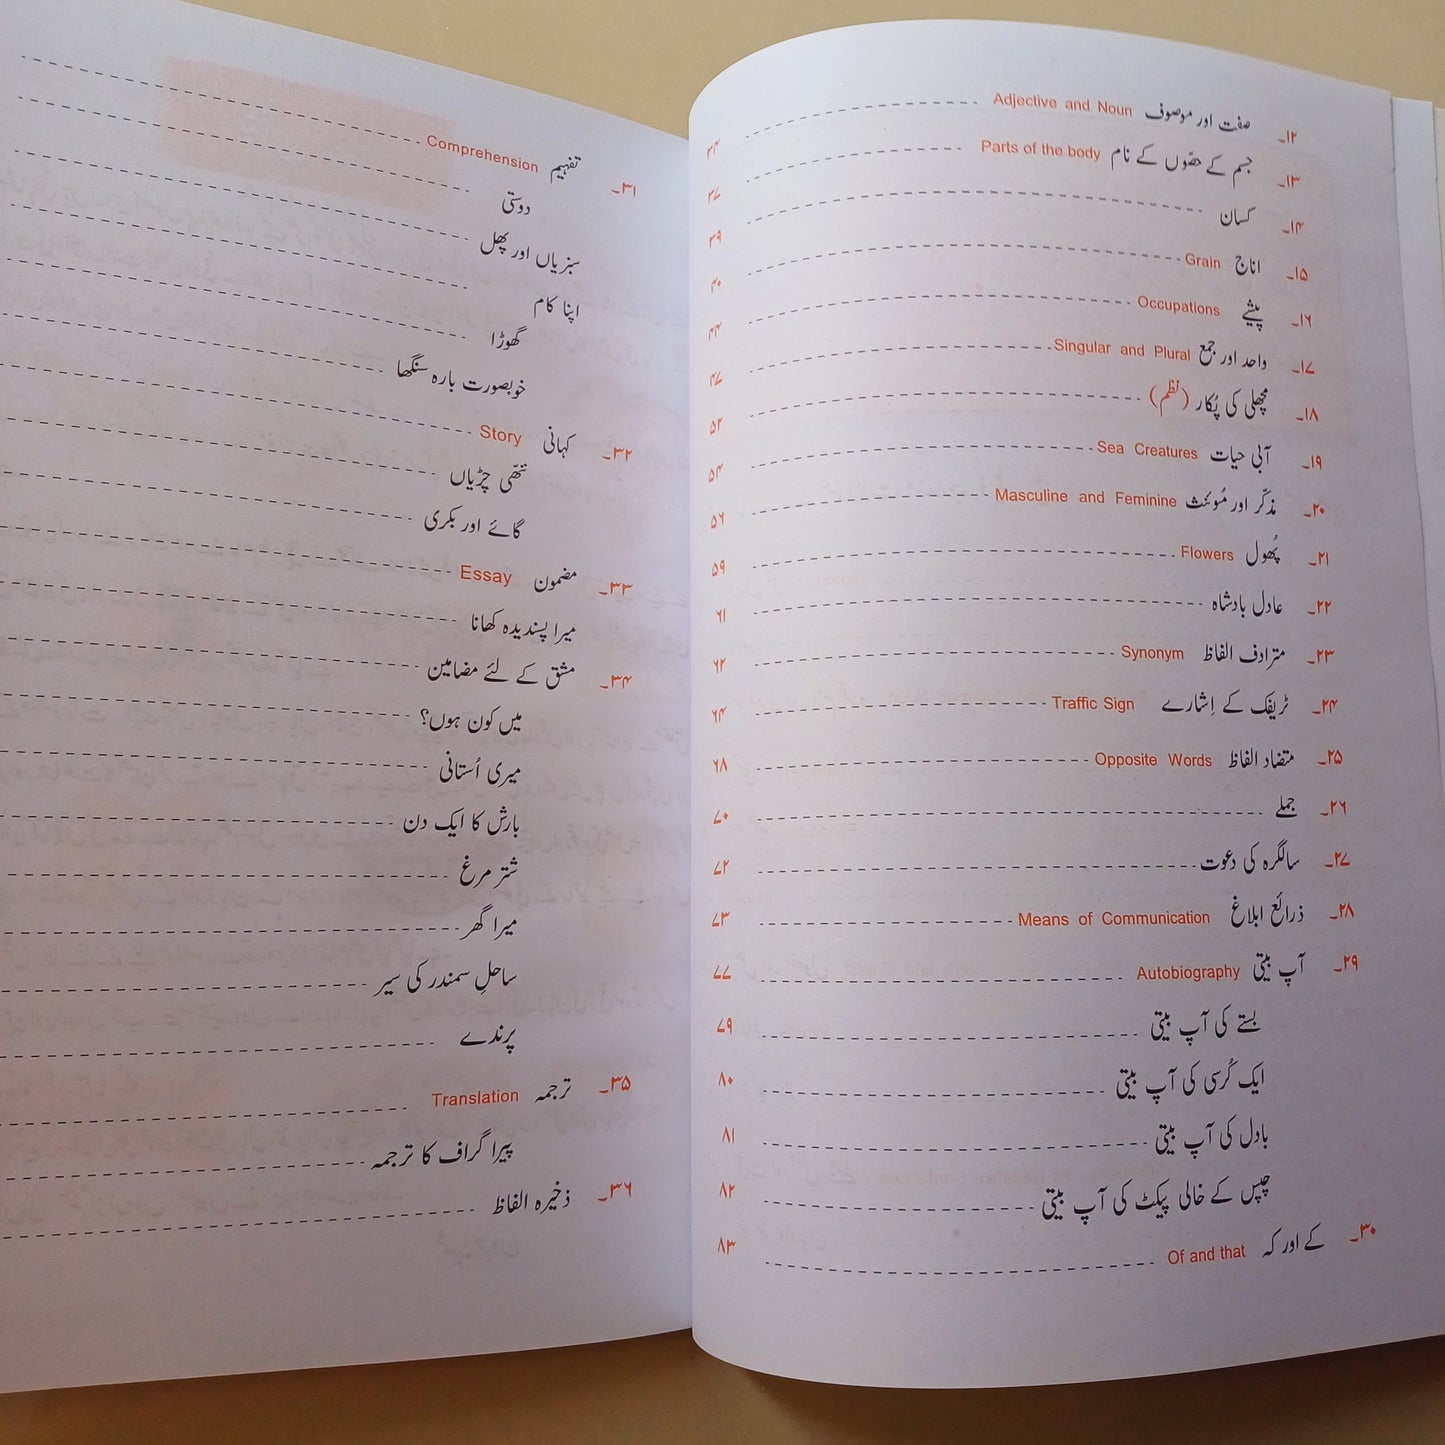 ۱۲۔ صفت اور موصوف Adjective and Noun ۳۴
۱۳۔ جسم کے حصّوں کے نام Parts of the body ۳۷
۱۴۔ کسان ۳۹
۱۵۔ اناج Grain ۴۰
۱۶۔ پیشے Occupations ۴۴
۱۷۔ واحد اور جمع Singular and Plural ۴۷
۱۸۔ مچھلی کی پُکار (نظم) ۵۲
۱۹۔ آبی حیات Sea Creatures ۵۴
۲۰۔ مذکّر اور مُونث Masculine and Feminine ۵۶
۲۱۔ پُھول Flowers ۵۹
۲۲۔ عادل بادشاہ ۶۱
۲۳۔ مترادف الفاظ Synonym ۶۲
۲۴۔ ٹریفک کے اِشارے Traffic Sign ۶۴
۲۵۔ متضاد الفاظ Opposite Words ۶۸
۲۶۔ جملے ۷۰
۲۷۔ سالگرہ کی دعوت ۷۲
۲۸۔ ذرائع ابلاغ Means of Communication ۷۳
۲۹۔ آپ بیتی Autobiography ۷۷
بستے کی آپ بیتی ۷۹
ایک کُرسی کی آپ بیتی ۸۰
بادل کی آپ بیتی ۸۱
چپس کے خالی پیکٹ کی آپ بیتی ۸۲
۳۰۔ کے اور کہ Of and that ۸۳
۳۱۔ تفہیم Comprehension
دوستی
سبزیاں اور پھل
اپنا کام
گھوڑا
خوبصورت بارہ سنگھا
۳۲۔ کہانی Story
ننّھی چڑیاں
گائے اور بکری
۳۳۔ مضمون Essay
میرا پسندیدہ کھانا
۳۴۔ مشق کے لئے مضامین
میں کون ہوں؟
میری اُستانی
بارش کا ایک دن
شتر مرغ
میرا گھر
ساحلِ سمندر کی سیر
پرندے
۳۵۔ ترجمہ Translation
پیرا گراف کا ترجمہ
۳۶۔ ذخیرہ الفاظ